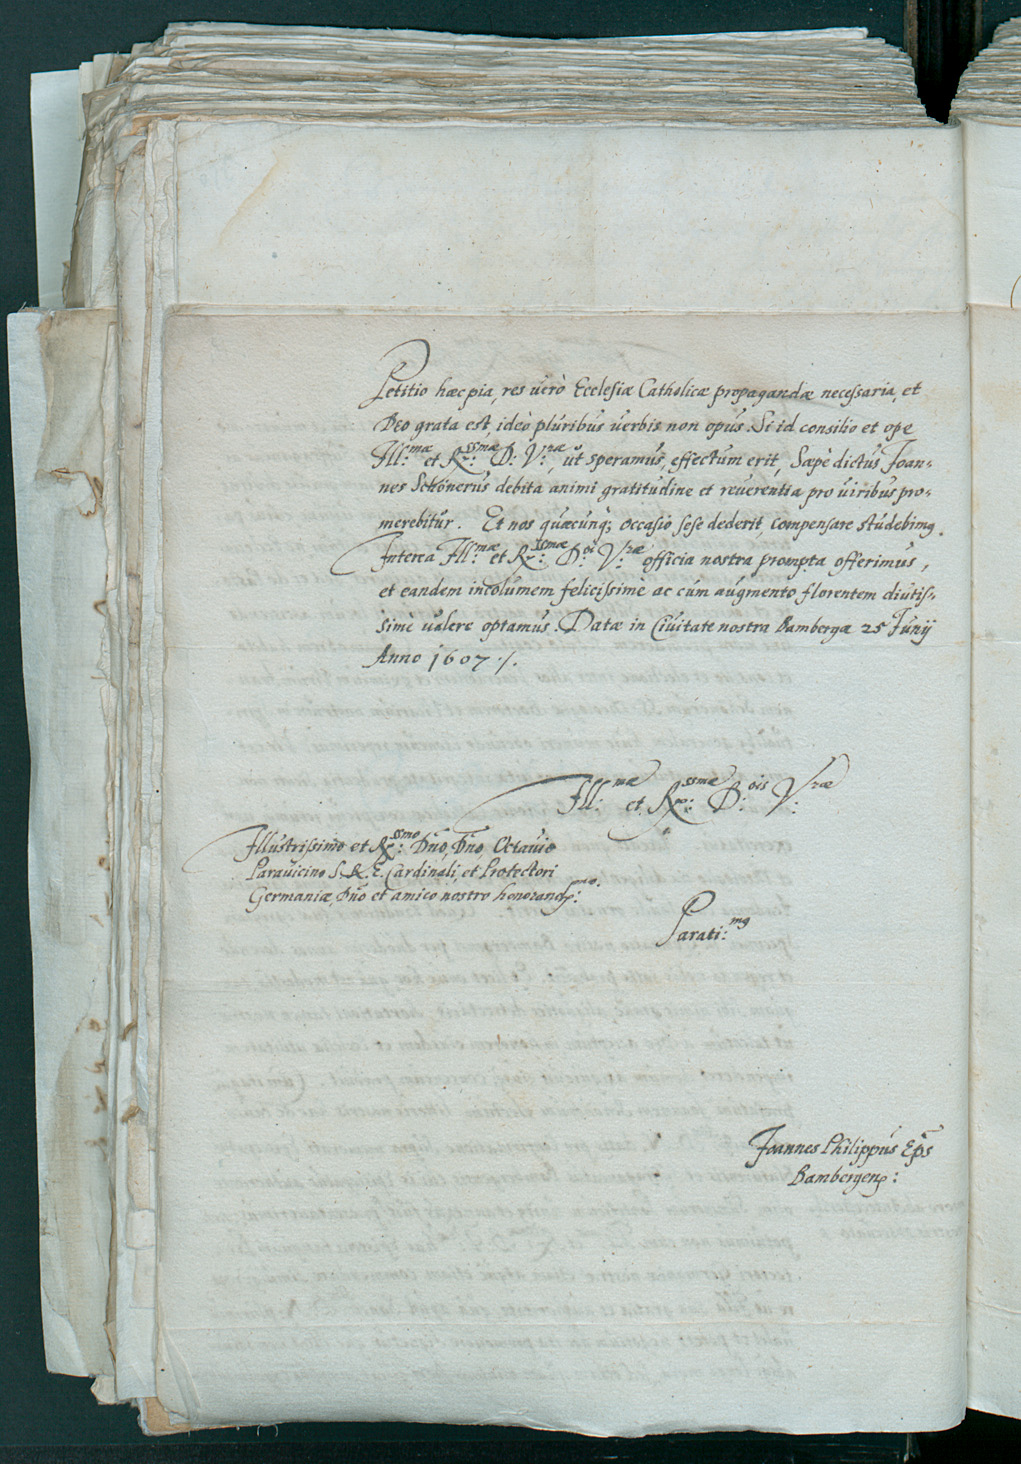 Petitio hæc pia, res verò Ecclesiæ Catholicæ propagandæ necessaria, et
Deo grata est, ideò pluribus verbis non opus. Si id consilio et ope
Ill:mæ et R:ssmæ D: V:ræ, ut speramus, effectum erit, Sæpè dictus Joan-
nes Schönerus debita animi gratitudine et reverentia pro viribus pro-
merebitur. Et nos quæcunq; occasio sese dederit, compensare studebimus.
Interea Ill:mæ et R:ssmæ D:oi V:ræ officia nostra prompta offerimus,
et eandem incolumem felicissimè ac cum augmento florentem diutis-
simè valere optamus. Datæ in Civitate nostra Bambergæ 25 Junij
Anno 1607 ./.
Ill:mæ et R:ssmæ D:ois V:ræ
Illustrissimo et R:ssmo Dño, Dño, Octavio
Paravicino S. R. E. Cardinali, et Protectori
Germaniæ, Dño et amico nostro honorand:
Parati:mus
Joannes Philippus Eps
Bambergen: